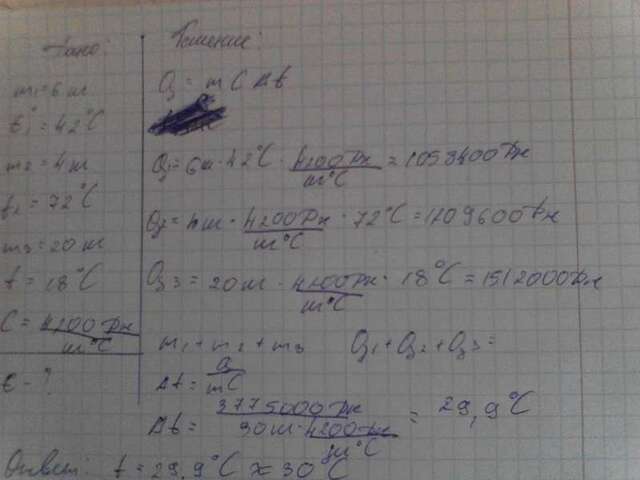 Дано:
m₁ = 6 m
t₁° = 42°C
m₂ = 4 m
t₂ = 72°C
m₃ = 20 m
t = 18°C
C = 4200 Дж / m°C
t - ?
Решение:
Q = m C Δt
Q₁ = 6m · 42°C · 4200 Дж / m°C = 1058400 Дж
Q₂ = 4m · 4200 Дж / m°C · 72°C = 1209600 Дж
Q₃ = 20m · 4200 Дж / m°C · 18°C = 1512000 Дж
m₁ + m₂ + m₃ Q₁ + Q₂ + Q₃ =
Δt = Q / mC
Δt = 3775000 Дж / 30m · 4200 Дж / m°C = 29,9°C
Ответ: t = 29,9°C ≈ 30°C